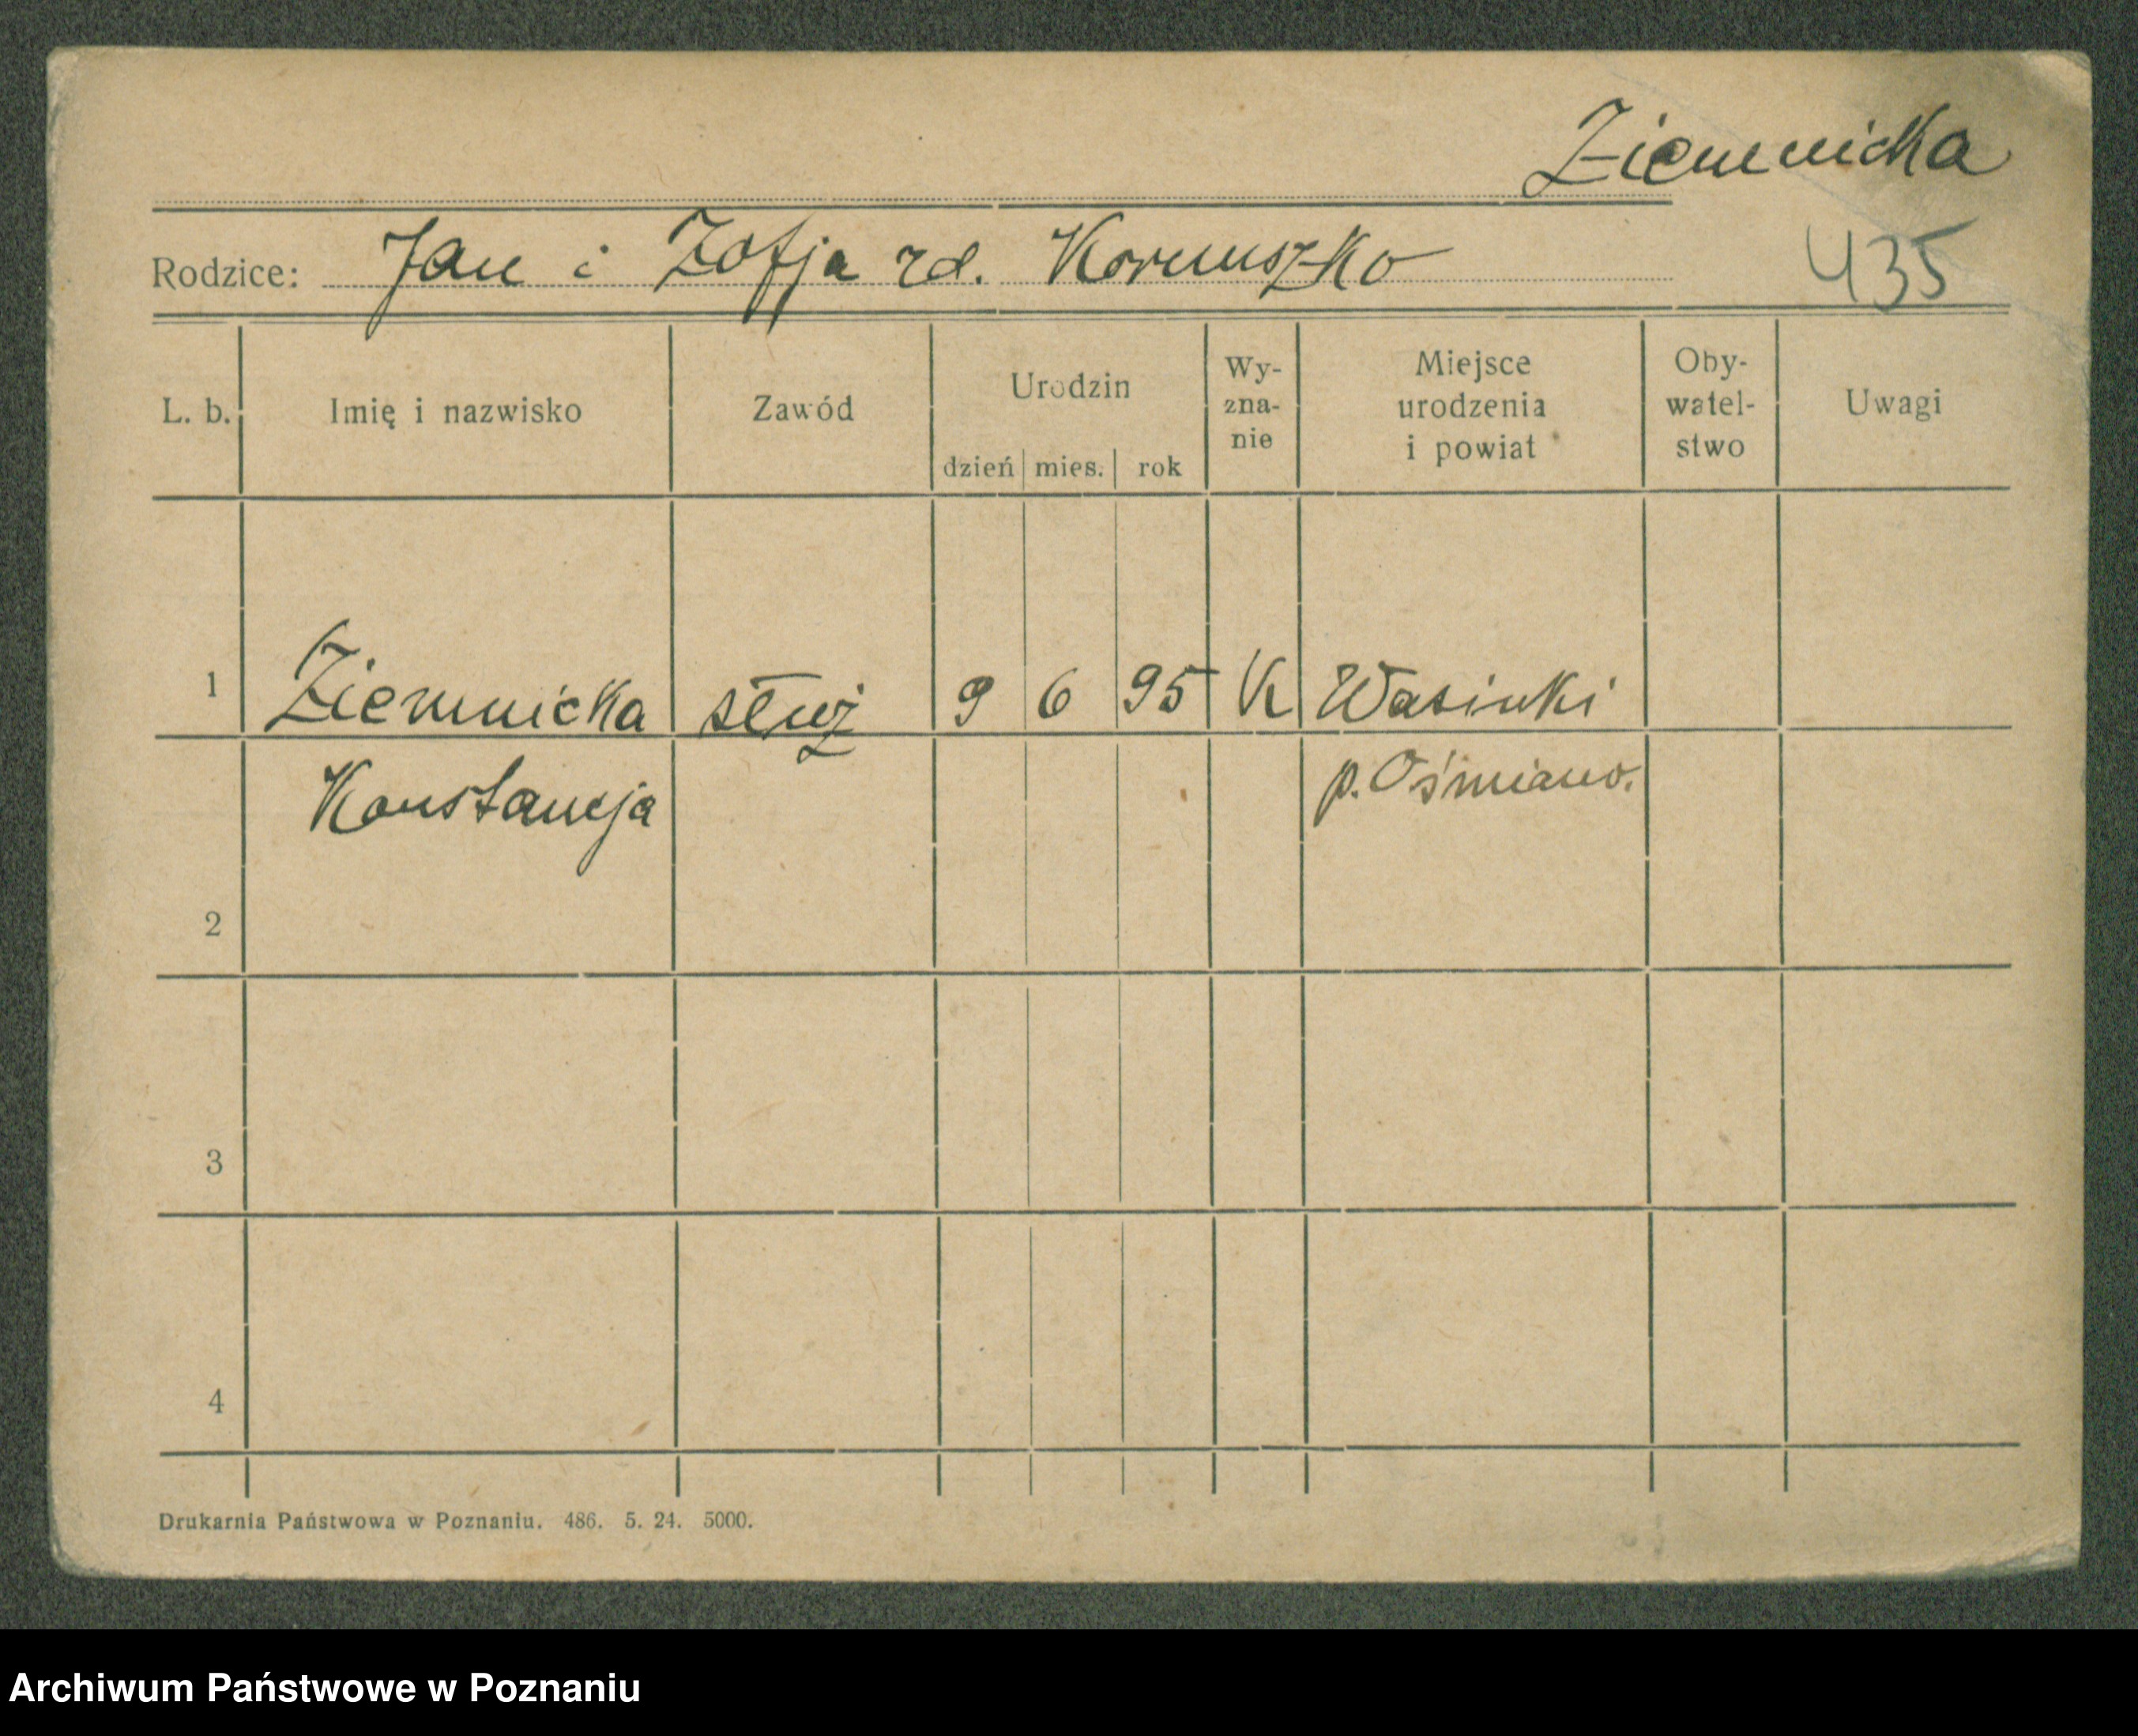 Ziemnicka
Rodzice: Jan i Zofja rd. Kornuszko
435
L. b. Imię i nazwisko Zawód Urodzin dzień mies. rok Wy-zna-nie Miejsce urodzenia i powiat Oby-watel-stwo Uwagi
1 Ziemnicka służ 9 6 95 K Wasiuki
Konstancja p. Ośmiano.
2
3
4
Drukarnia Państwowa w Poznaniu. 486. 5. 24. 5000.
Archiwum Państwowe w Poznaniu